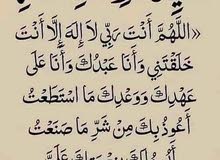 «اللَّهُمَّ أَنْتَ رَبِّي لَا إِلَهَ إِلَّا أَنْتَ
خَلَقْتَنِي وَأَنَا عَبْدُكَ وَأَنَا عَلَى
عَهْدِكَ وَوَعْدِكَ مَا اسْتَطَعْتُ
أَعُوذُ بِكَ مِنْ شَرِّ مَا صَنَعْتُ